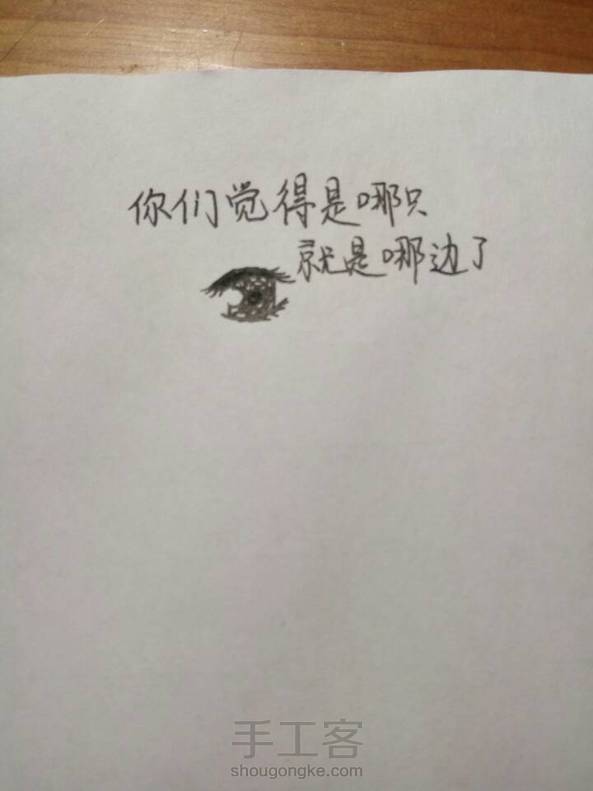 你们觉得是哪只
就是哪边了
手工客
shougongke.com